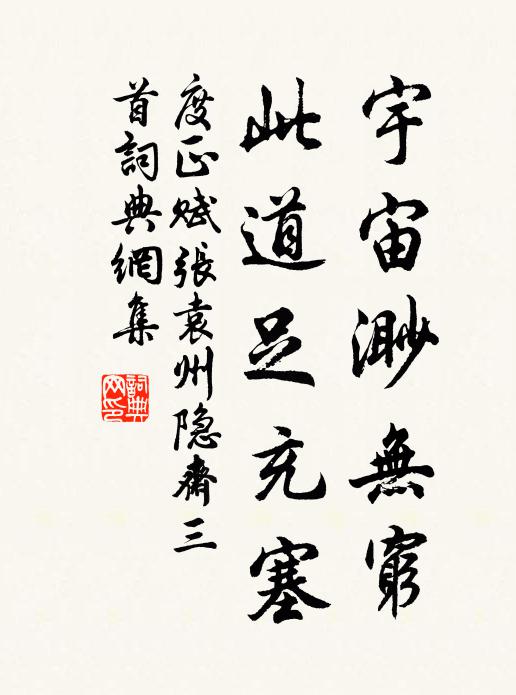 宇宙渺無窮
此道足充塞
度正賦張袁州隐齋三
首詞典網集
詞典網印